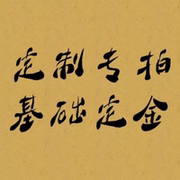 定制专拍
基础定金